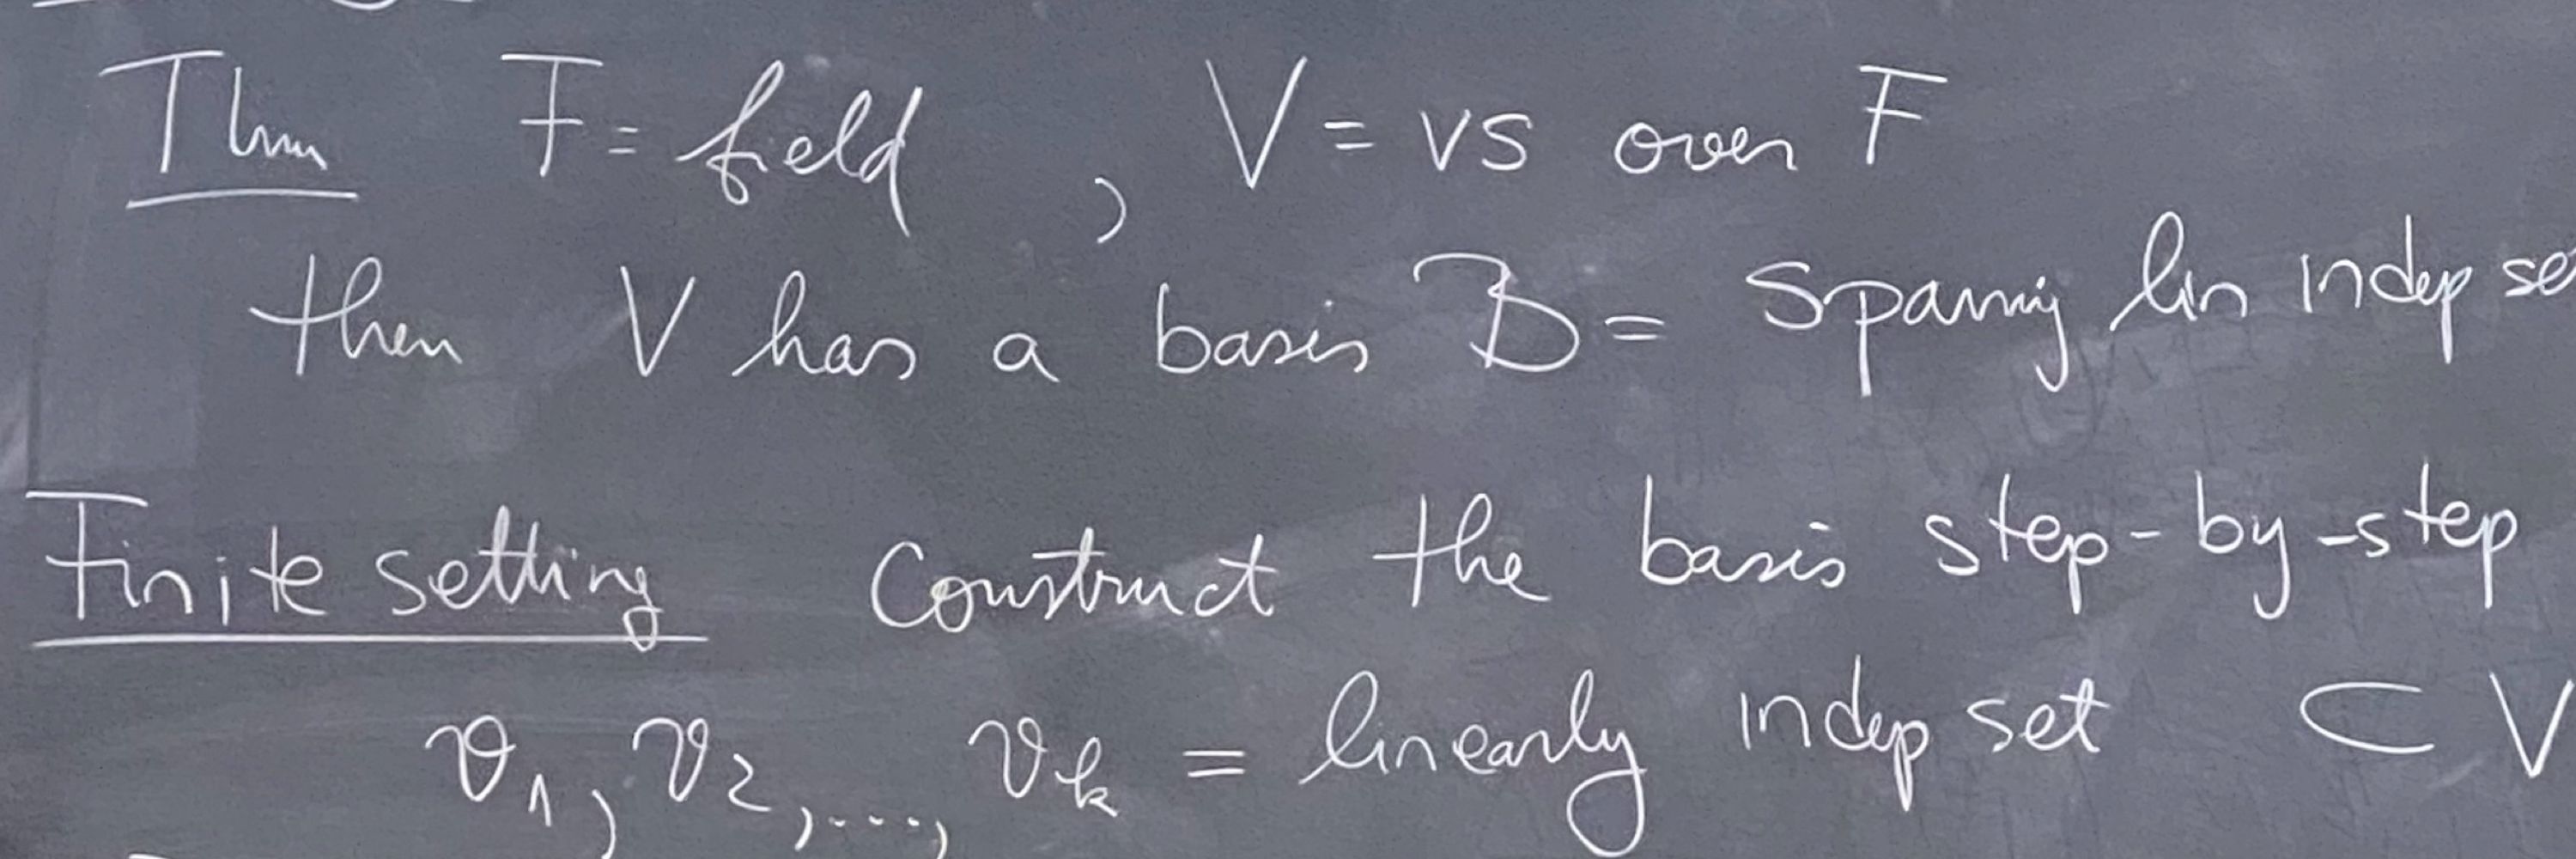 Thm F = field, V = vs over F
then V has a basis B = spaning lin indep se
Finite setting Construct the basis step-by-step
v₁, v₂, ..., vₖ = linearly indep set ⊂ V